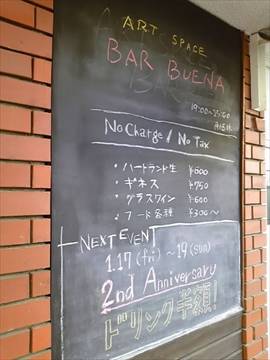 ART SPACE
BAR BUENA
19:00~25:00
No Charge / No Tax
・ハートランド生 ¥600
・ギネス ¥750
・グラスワイン ¥600
・フード各種 ¥300~
NEXT EVENT
1.17(fri)~19(sun)
2nd Anniversary
ドリンク半額!